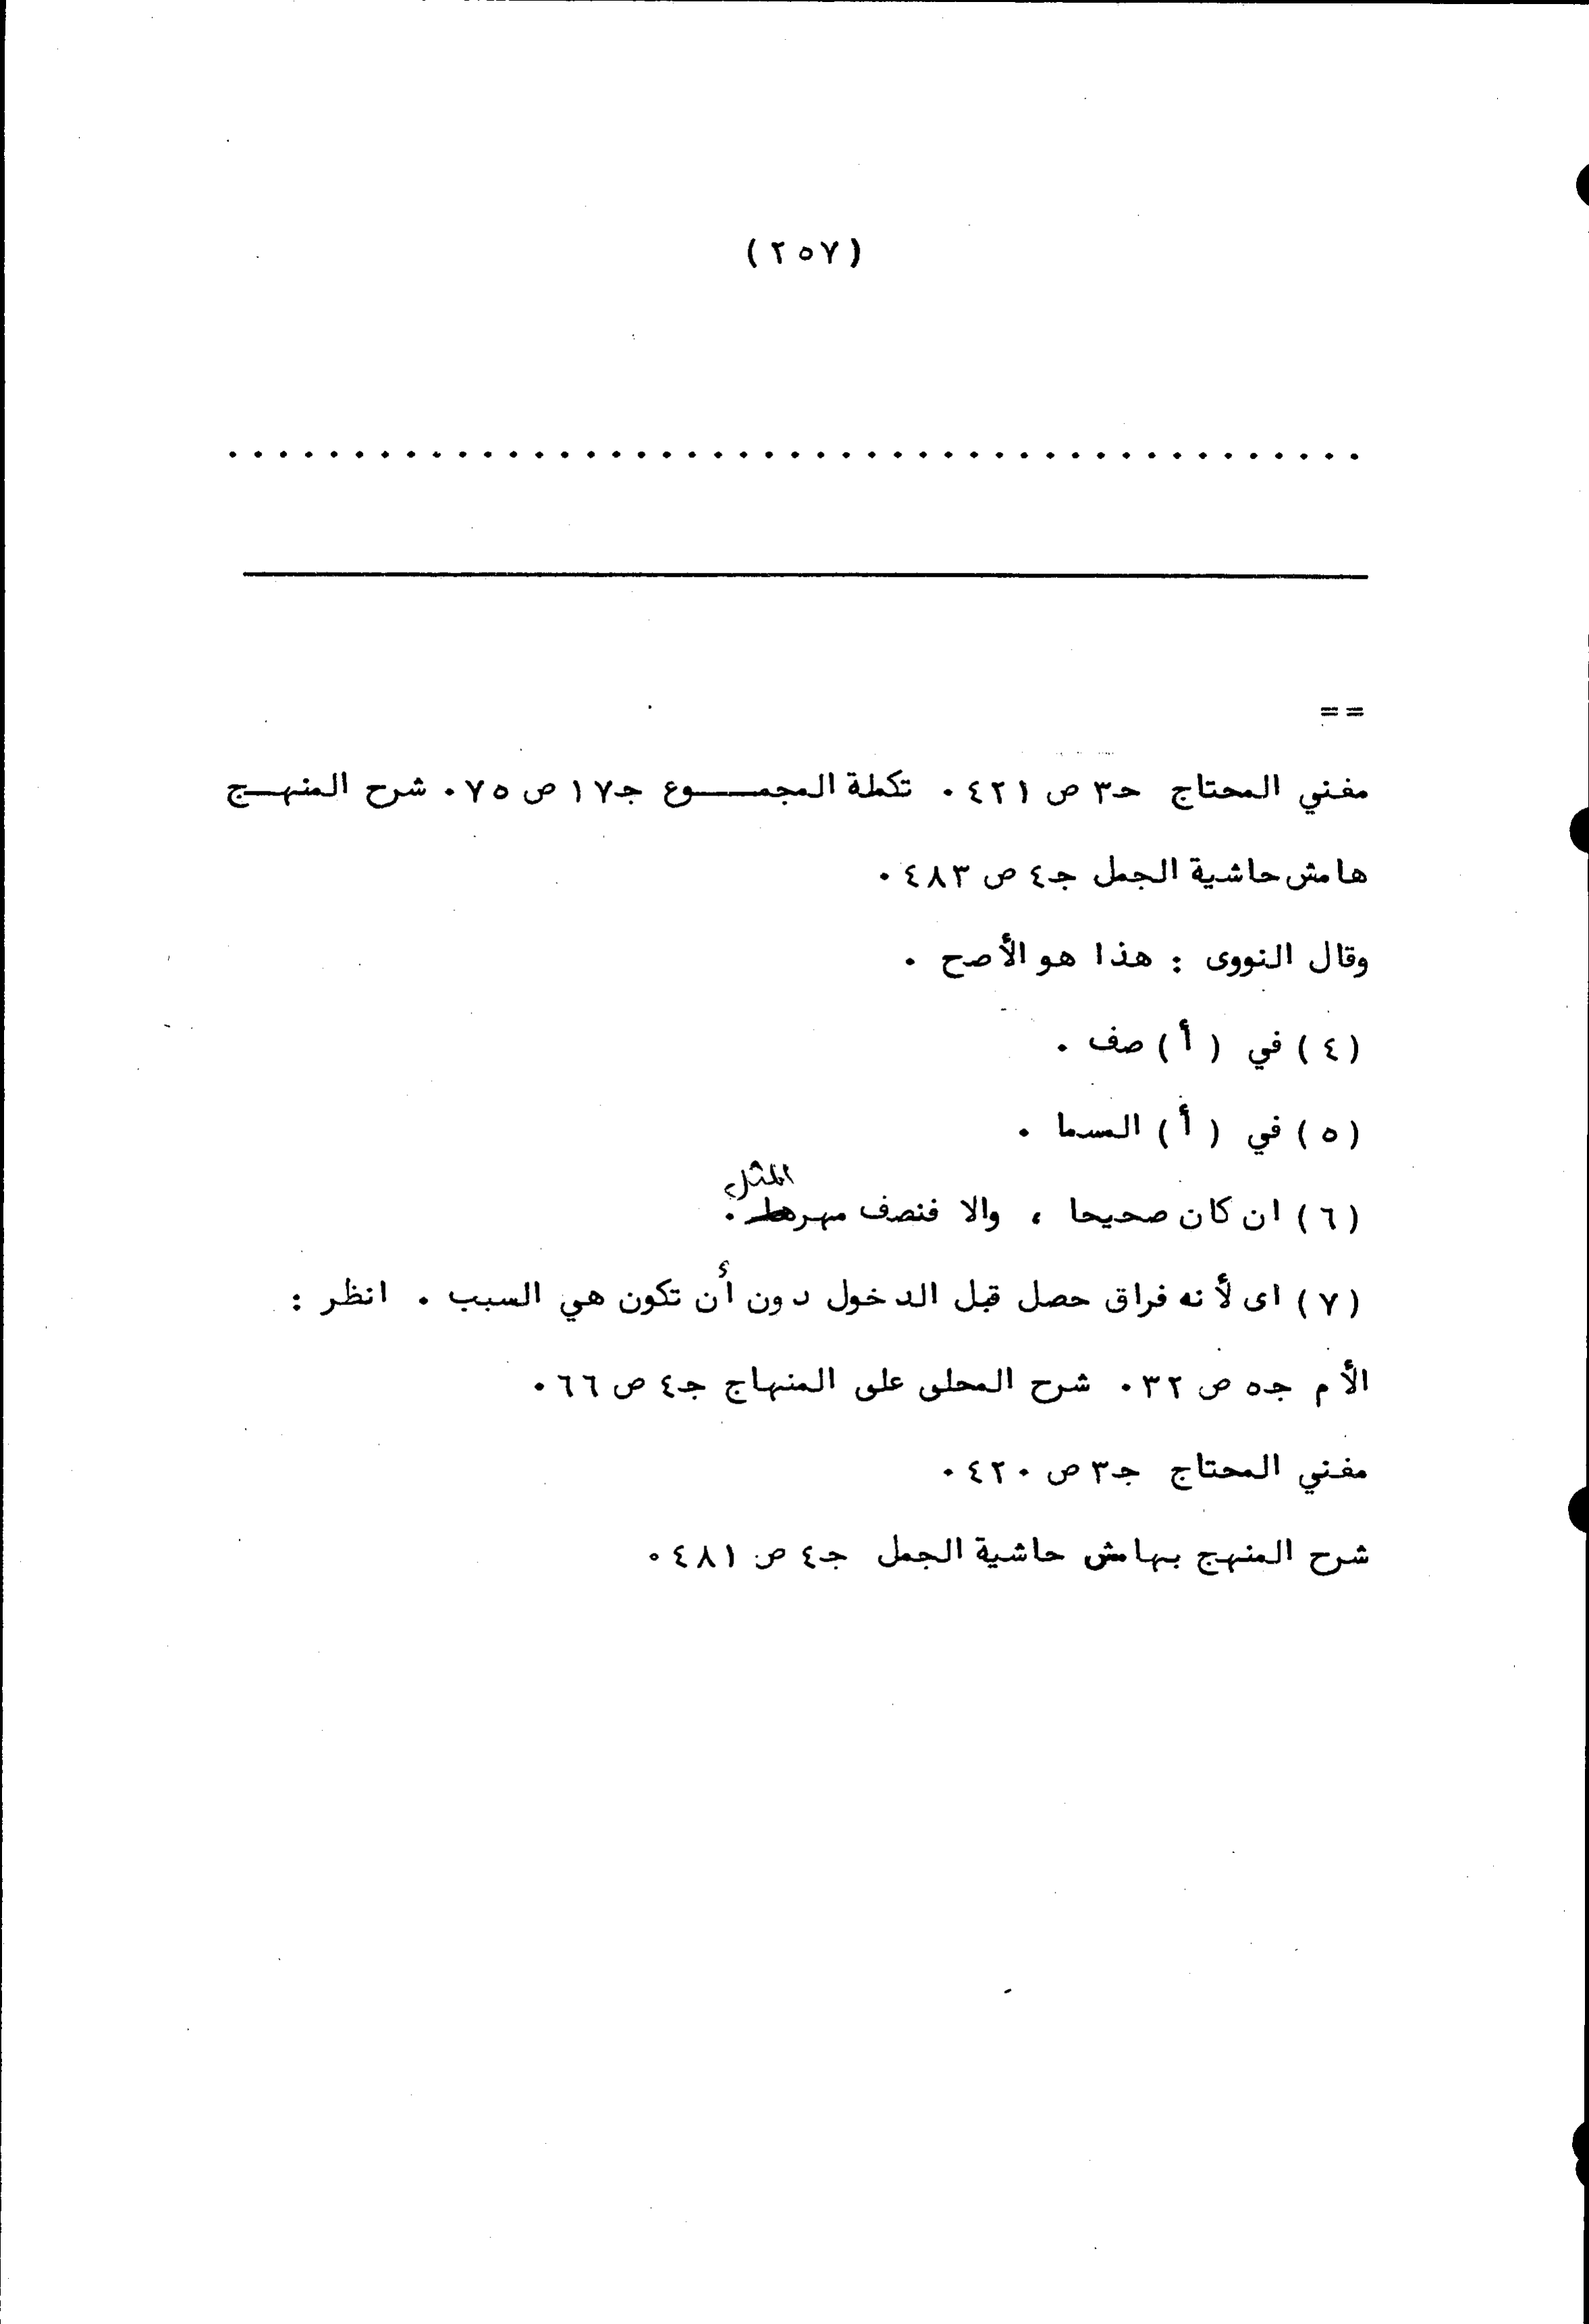 ( ٢٥٧ )
. . . . . . . . . . . . . . . . . . . . . . . . . . . . . . . . . . . . . . . . . . . . .
==
مغني المحتاج حـ٣ ص ٤٢١ ٠ تكملة المجمـــوع جـ١٧ ص ٧٥ ٠ شرح المنهـج
هامش حاشية الجمل جـ٤ ص ٤٨٣ ٠
وقال النووى : هذا هو الأصح ٠
( ٤ ) في ( أ ) صف ٠
( ٥ ) في ( أ ) المسما ٠
( ٦ ) ان كان صحيحا ، والا فنصف مهر المثل ٠
( ٧ ) اى لأنه فراق حصل قبل الدخول دون أن تكون هي السبب ٠ انظر :
الأم جـ٥ ص ٣٢ ٠ شرح المحلى على المنهاج جـ٤ ص ٦٦ ٠
مغني المحتاج جـ٣ ص ٤٢٠ ٠
شرح المنهج بهامش حاشية الجمل جـ٤ ص ٤٨١ ٠